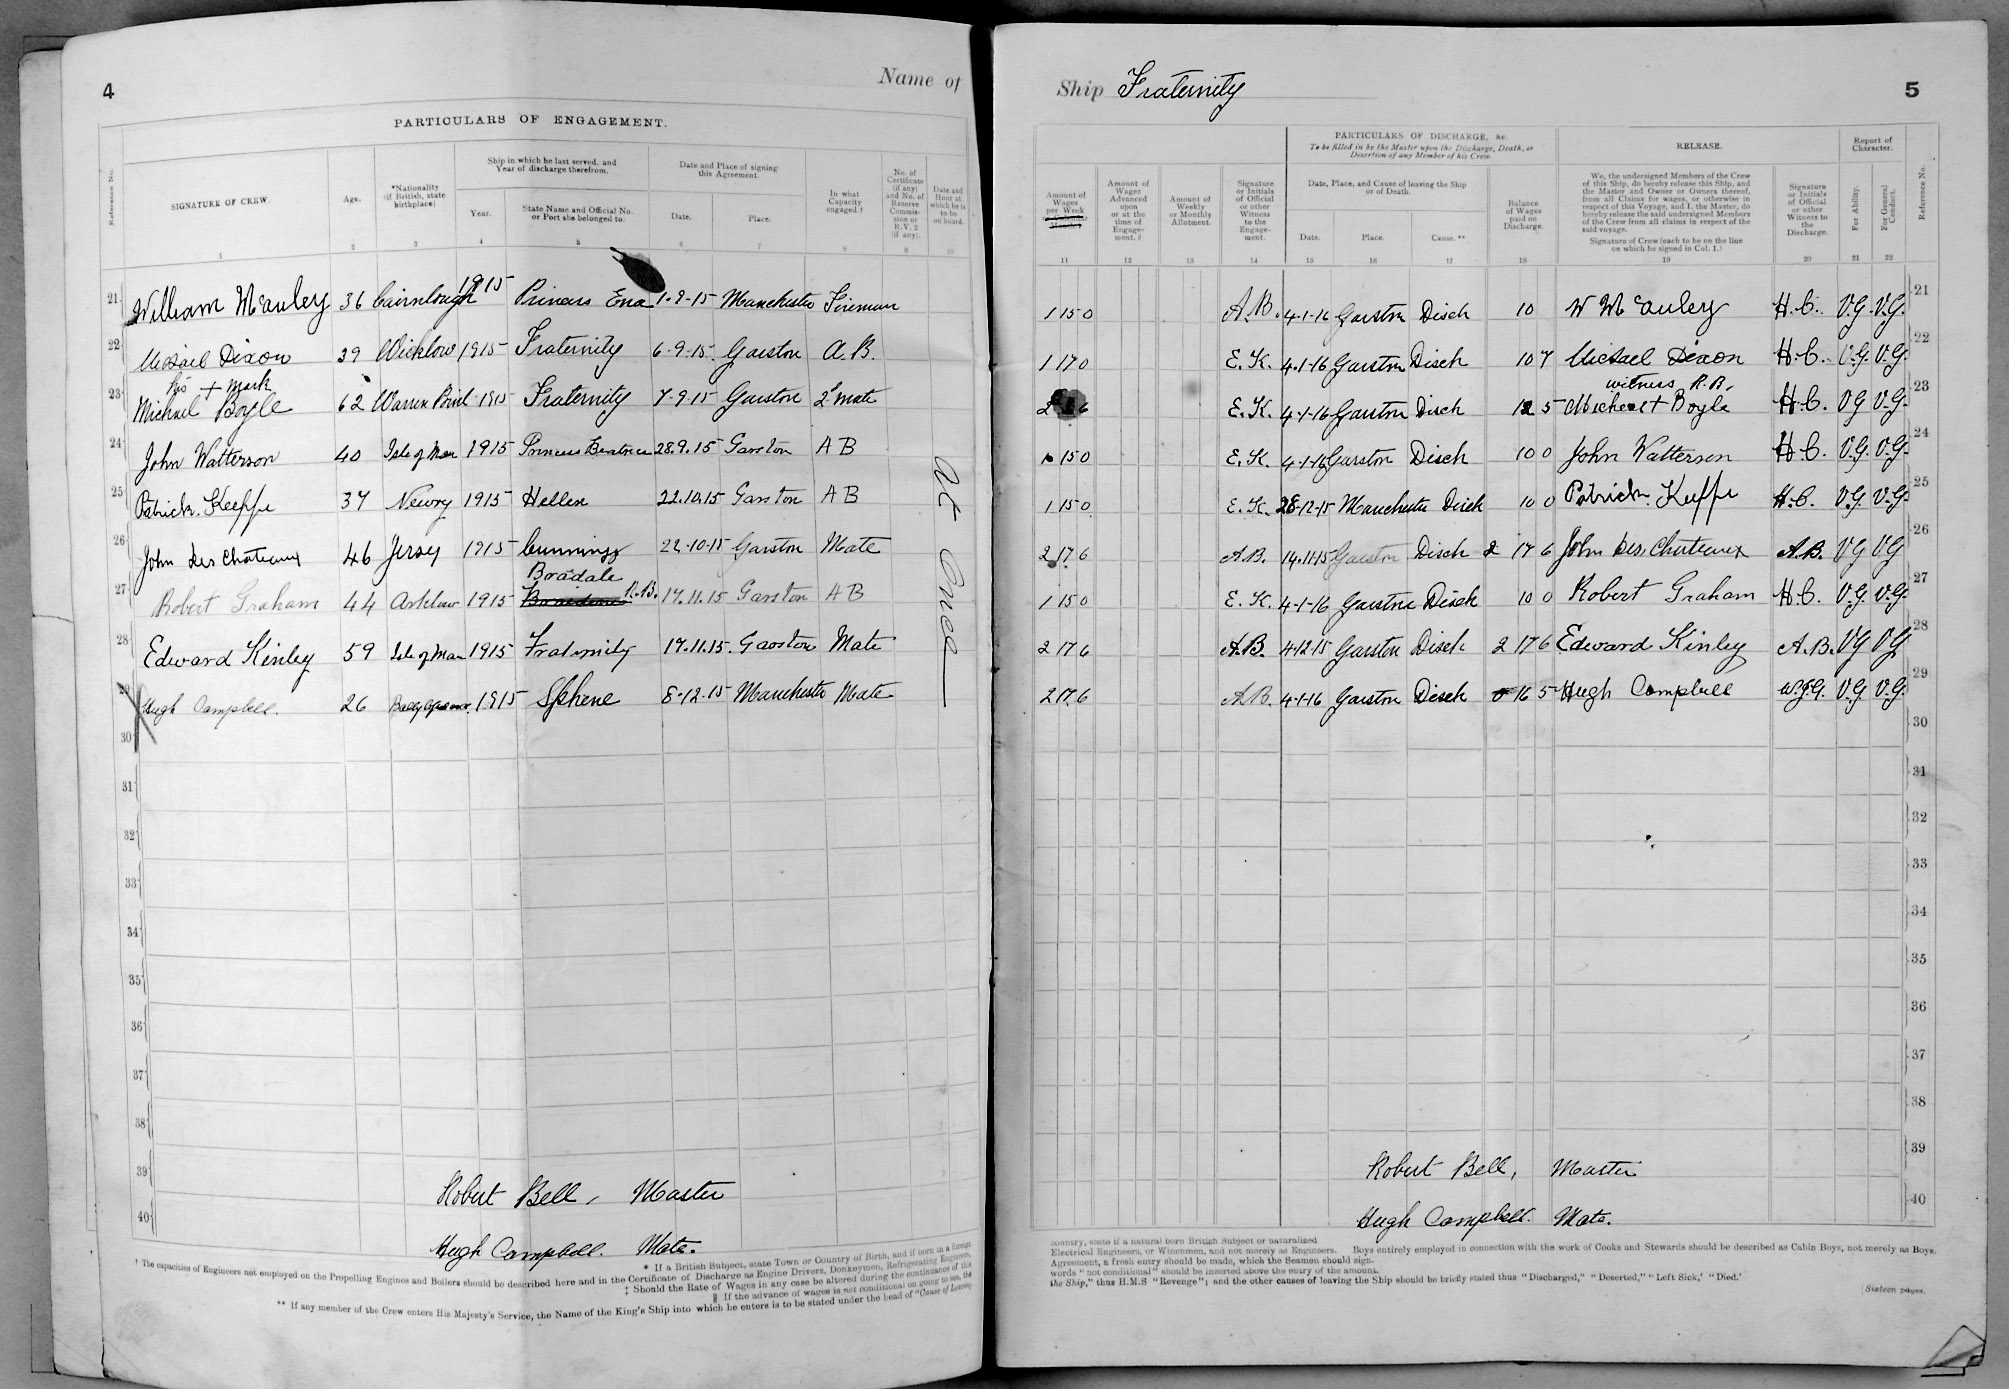 4
Name of
PARTICULARS OF ENGAGEMENT.
Reference No.
SIGNATURE OF CREW.
Age.
*Nationality (if British, state birthplace)
Ship in which he last served, and Year of discharge therefrom.
Year.
State Name and Official No. or Port she belonged to.
Date and Place of signing this Agreement.
Date.
Place.
In what Capacity engaged.†
No. of Certificate (if any) and No. of Reserve Commission or R.V.2 (if any).
Date and Hour at which he is to be on board.
1 2 3 4 5 6 7 8 9 10
21 William McAuley 36 Cairnlough 1915 Princess Ena 1-9-15 Manchester Fireman
22 Michael Dixon 39 Wicklow 1915 Fraternity 6-9-15 Garston A.B.
his + mark
23 Michael Boyle 62 Warren Point 1915 Fraternity 7-9-15 Garston 2d mate
24 John Watterson 40 Isle of Man 1915 Princess Beatrice 28.9.15 Garston A B
25 Patrick Keeffe 37 Newry 1915 Hellen 22.10.15 Garston A B
26 John des Chateaux 46 Jersy 1915 Cunningg 22-10-15 Garston Mate
Boadale
27 Robert Graham 44 Arklow 1915 R.B. 17.11.15 Garston A B
28 Edward Kinley 59 Isle of Man 1915 Fraternity 19.11.15. Garston Mate
29 Hugh Campbell. 26 1915 Sphene 8-12-15 Manchester Mate
At Once
30
31
32
33
34
35
36
37
38
39
40
Robert Bell, Master
Hugh Campbell. Mate.
* If a British Subject, state Town or Country of Birth, and if born in a foreign
† The capacities of Engineers not employed on the Propelling Engines and Boilers should be described here and in the Certificate of Discharge as Engine Drivers, Donkeymen, Refrigerating Engineers,
‡ Should the Rate of Wages in any case be altered during the continuance of this
‖ If the advance of wages is not conditional on going to sea, the
** If any member of the Crew enters His Majesty's Service, the Name of the King's Ship into which he enters is to be stated under the head of "Cause of Leaving
Ship Fraternity
5
Amount of Wages per Week
Amount of Wages Advanced upon or at the time of Engagement.‖
Amount of Weekly or Monthly Allotment.
Signature or Initials of Official or other Witness to the Engagement.
PARTICULARS OF DISCHARGE, &c.
To be filled in by the Master upon the Discharge, Death, or Desertion of any Member of his Crew.
Date, Place, and Cause of leaving the Ship or of Death.
Date.
Place.
Cause.**
Balance of Wages paid on Discharge.
RELEASE.
We, the undersigned Members of the Crew
of this Ship, do hereby release this Ship, and
the Master and Owner or Owners thereof,
from all Claims for wages, or otherwise in
respect of this Voyage, and I, the Master, do
hereby release the said undersigned Members
of the Crew from all claims in respect of the
said voyage.
Signature of Crew (each to be on the line
on which he signed in Col. 1.)
Signature or Initials of Official or other Witness to the Discharge.
Report of Character.
For Ability.
For General Conduct.
Reference No.
11 12 13 14 15 16 17 18 19 20 21 22
1 15 0 A.B. 4-1-16 Garston Disch 10 W McAuley H.C. V.G. V.G. 21
1 17 0 E.K. 4-1-16 Garston Disch 10 7 Michael Dixon H.C. V.G. V.G. 22
witness R.B.
2 6 E.K. 4-1-16 Garston Disch 12 5 Michael + Boyle H.C. V.G V.G. 23
1 15 0 E.K. 4-1-16 Garston Disch 10 0 John Watterson H.C. V.G. V.G. 24
1 15 0 E.K. 28-12-15 Manchester Disch 10 0 Patrick Keffe H.C. V.G. V.G. 25
2 17 6 A.B. 14.11.15 Garston Disch 2 17 6 John des Chateaux A.B. VG VG 26
1 15 0 E.K. 4-1-16 Garston Disch 10 0 Robert Graham H.C. V.G. V.G. 27
2 17 6 A.B. 4-12-15 Garston Disch 2 17 6 Edward Kinley A.B. VG VG 28
2 17.6 A.B. 4-1-16 Garston Disch 16 5 Hugh Campbell W.J.G. V.G. V.G. 29
30
31
32
33
34
35
36
37
38
39
40
Robert Bell, Master
Hugh Campbell. Mate.
country, state if a natural born British Subject or naturalized
Electrical Engineers, or Winchmen, and not merely as Engineers. Boys entirely employed in connection with the work of Cooks and Stewards should be described as Cabin Boys, not merely as Boys.
Agreement, a fresh entry should be made, which the Seamen should sign.
words "not conditional" should be inserted above the entry of the amount.
the Ship," thus H.M.S "Revenge"; and the other causes of leaving the Ship should be briefly stated thus "Discharged," "Deserted," "Left Sick,' "Died.'
[Sixteen pages.